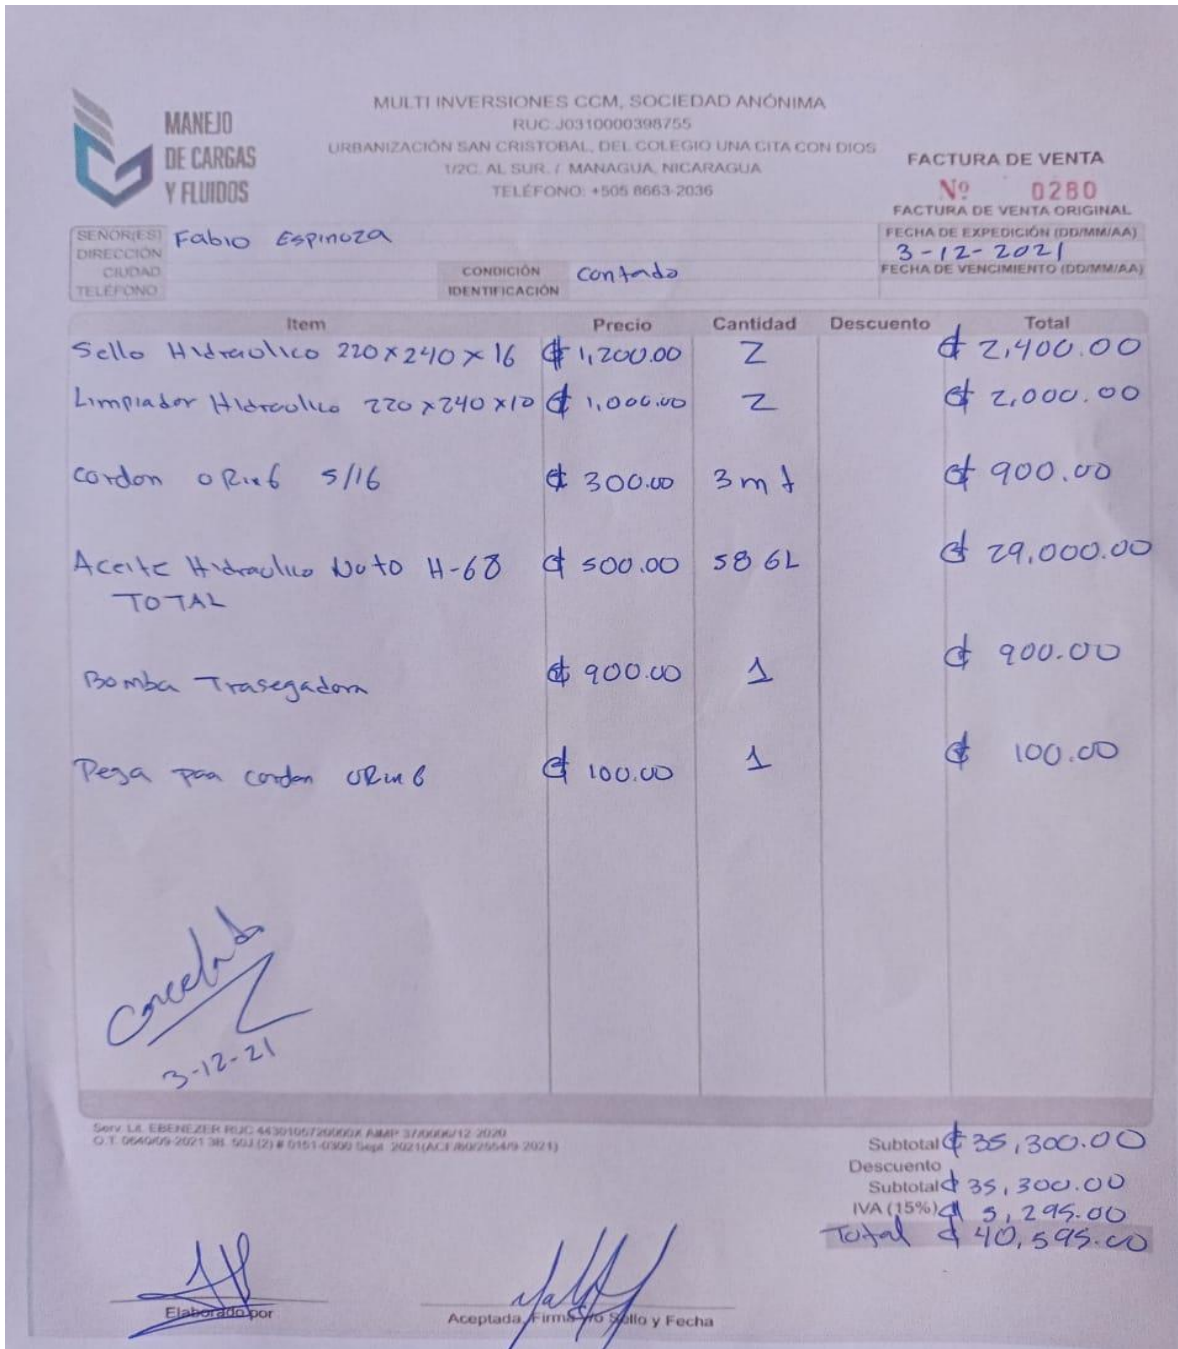 MANEJO
DE CARGAS
Y FLUIDOS
MULTI INVERSIONES CCM, SOCIEDAD ANÓNIMA
RUC J0310000398755
URBANIZACIÓN SAN CRISTOBAL, DEL COLEGIO UNA CITA CON DIOS
1/2C. AL SUR. / MANAGUA, NICARAGUA
TELÉFONO: +505 8663-2036
FACTURA DE VENTA
Nº 0280
FACTURA DE VENTA ORIGINAL
SEÑOR(ES) Fabio Espinoza
DIRECCIÓN
CIUDAD
TELÉFONO
CONDICIÓN contado
IDENTIFICACIÓN
FECHA DE EXPEDICIÓN (DD/MM/AA)
3-12-2021
FECHA DE VENCIMIENTO (DD/MM/AA)
Item Precio Cantidad Descuento Total
Sello Hidraolico 220x240x16 ₡ 1,200.00 2 ₡ 2,400.00
Limpiador Hidraolico 220x240x10 ₡ 1,000.00 2 ₡ 2,000.00
cordon oRin6 5/16 ₡ 300.00 3mt ₡ 900.00
Aceite Hidraolico Nuto H-68 ₡ 500.00 58 GL ₡ 29,000.00
TOTAL
Bomba Trasegadora ₡ 900.00 1 ₡ 900.00
Pega paa cordon ORin6 ₡ 100.00 1 ₡ 100.00
Cancelado
3-12-21
Serv. Lit. EBENEZER RUC 4430106720000X AIMP 37/0006/12-2020
Subtotal ₡ 35,300.00
Descuento
Subtotal ₡ 35,300.00
IVA (15%) ₡ 5,295.00
Total ₡ 40,595.00
Elaborado por
Aceptada, Firma y/o Sello y Fecha